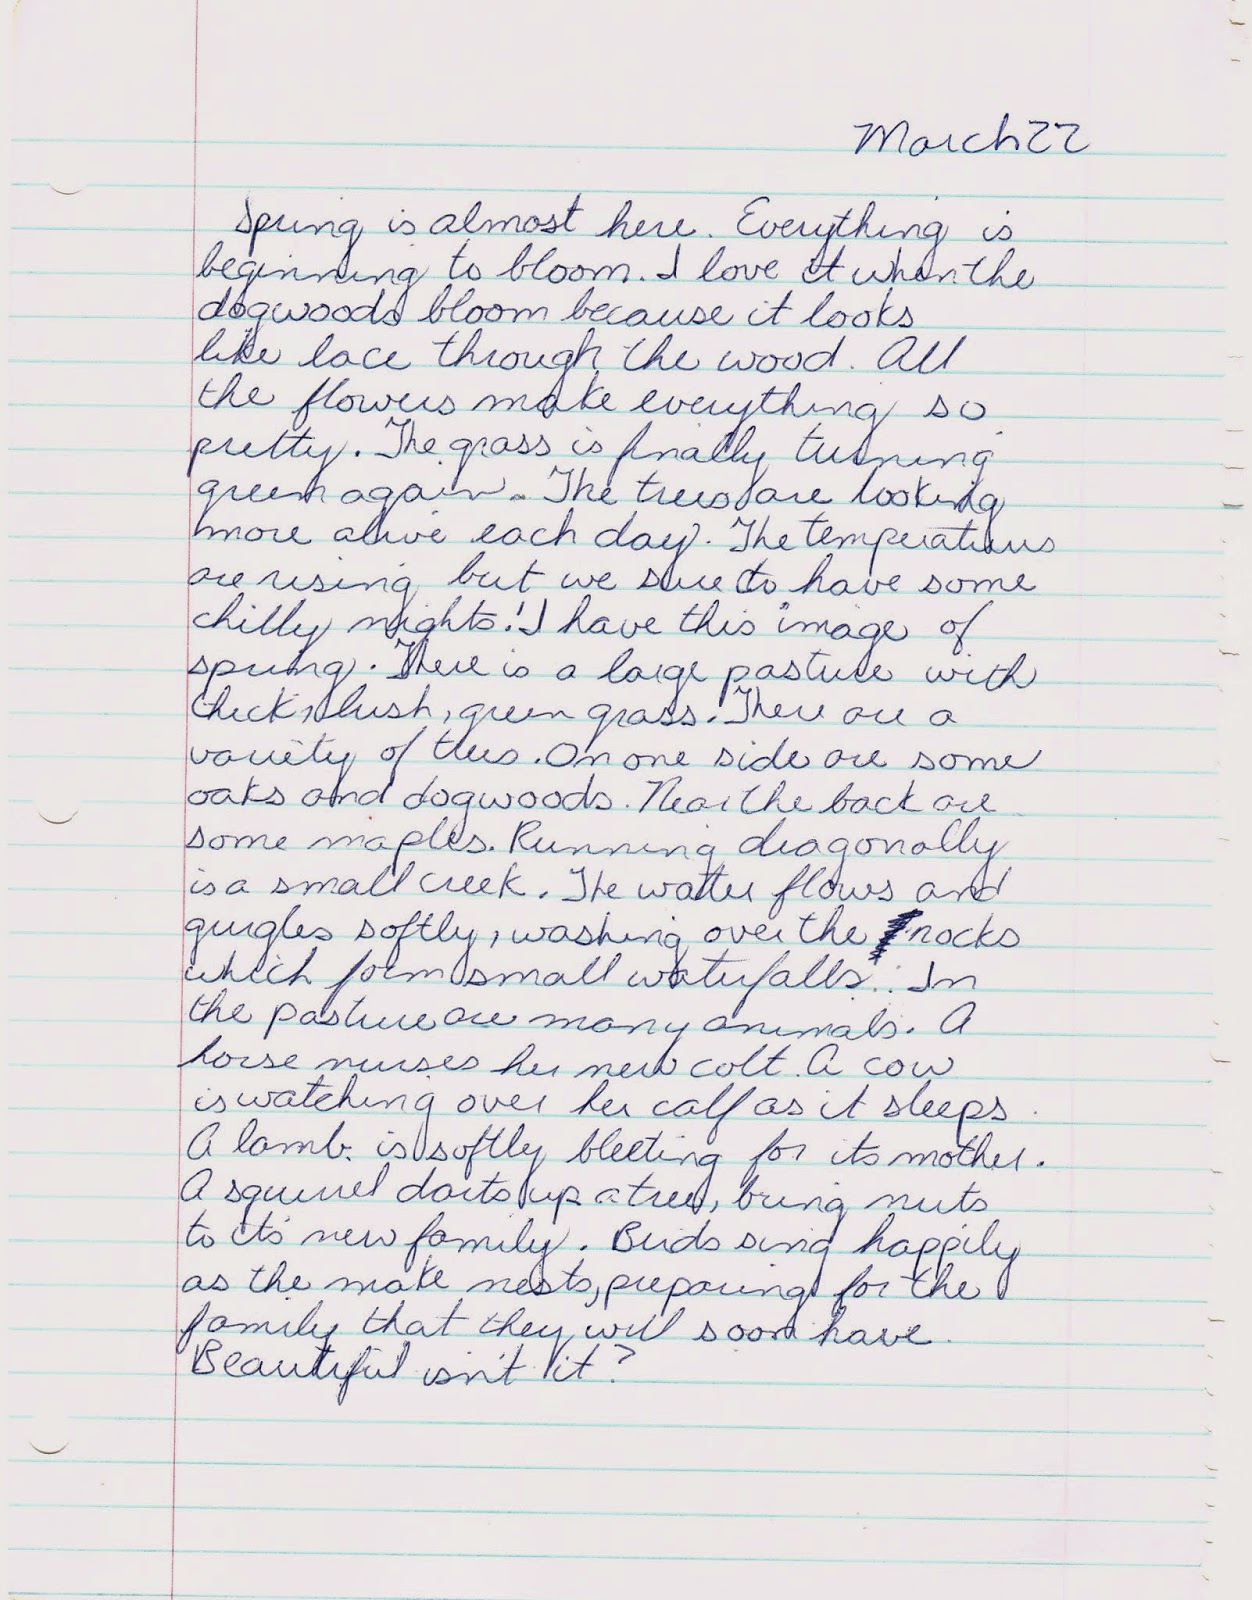 March 22
Spring is almost here. Everything is
beginning to bloom. I love it when the
dogwoods bloom because it looks
like lace through the wood. All
the flowers make everything so
pretty. The grass is finally turning
green again. The trees are looking
more alive each day. The temperatures
are rising but we sure do have some
chilly nights! I have this image of
spring. There is a large pasture with
thick, lush, green grass. There are a
variety of trees. On one side are some
oaks and dogwoods. Near the back are
some maples. Running diagonally
is a small creek. The water flows and
gurgles softly, washing over the rocks
which form small waterfalls. In
the pasture are many animals. A
horse nurses her new colt. A cow
is watching over her calf as it sleeps.
A lamb is softly bleeting for its mother.
A squirrel darts up a tree, bring nuts
to its new family. Birds sing happily
as the make nests, preparing for the
family that they will soon have.
Beautiful isn't it?